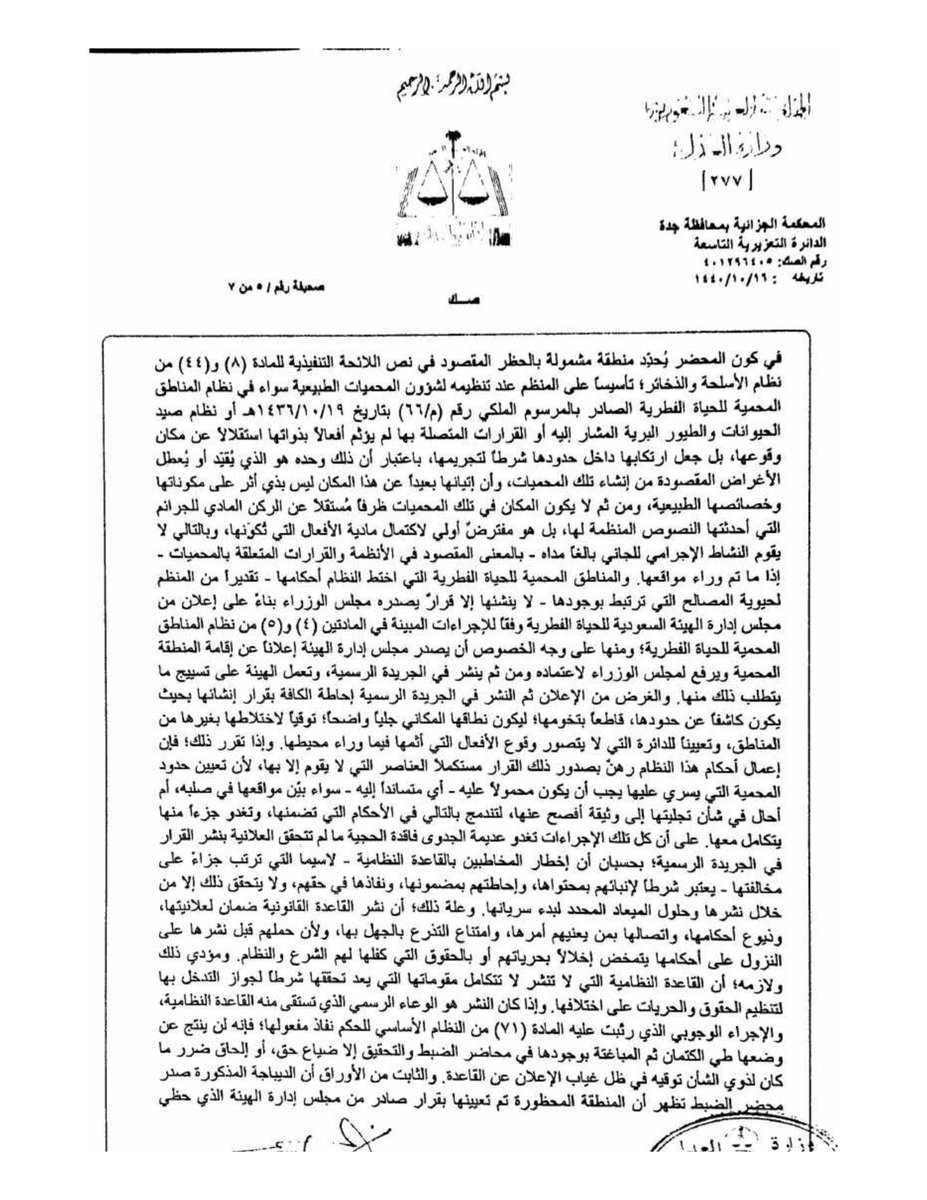 بسم الله الرحمن الرحيم
المملكة العربية السعودية
وزارة العدل
[٢٧٧]
المحكمة الجزائية بمحافظة جدة
الدائرة التعزيرية التاسعة
رقم الصك: ٤٠١٢٩٦٤٠٥
تاريخه : ١٤٤٠/١٠/١٦
صحيفة رقم / ٥ من ٧
صك
في كون المحضر يُحدِّد منطقة مشمولة بالحظر المقصود في نص اللائحة التنفيذية للمادة (٨) و(٤٤) من
نظام الأسلحة والذخائر؛ تأسيساً على المنظم عند تنظيمه لشؤون المحميات الطبيعية سواء في نظام المناطق
المحمية للحياة الفطرية الصادر بالمرسوم الملكي رقم (م/٦٦) بتاريخ ١٤٣٦/١٠/١٩هـ أو نظام صيد
الحيوانات والطيور البرية المشار إليه أو القرارات المتصلة بها لم يؤثم أفعالاً بذواتها استقلالاً عن مكان
وقوعها، بل جعل ارتكابها داخل حدودها شرطاً لتجريمها، باعتبار أن ذلك وحده هو الذي يُقيّد أو يُعطل
الأغراض المقصودة من إنشاء تلك المحميات، وأن إتيانها بعيداً عن هذا المكان ليس بذي أثر على مكوناتها
وخصائصها الطبيعية، ومن ثم لا يكون المكان في تلك المحميات ظرفاً مُستقلاً عن الركن المادي للجرائم
التي أحدثتها النصوص المنظمة لها، بل هو مفترضٌ أولي لاكتمال مادية الأفعال التي تُكوّنها، وبالتالي لا
يقوم النشاط الإجرامي للجاني بالغاً مداه - بالمعنى المقصود في الأنظمة والقرارات المتعلقة بالمحميات -
إذا ما تم وراء مواقعها. والمناطق المحمية للحياة الفطرية التي اختط النظام أحكامها - تقديراً من المنظم
لحيوية المصالح التي ترتبط بوجودها - لا ينشئها إلا قرارٌ يصدره مجلس الوزراء بناءً على إعلان من
مجلس إدارة الهيئة السعودية للحياة الفطرية وفقاً للإجراءات المبينة في المادتين (٤) و(٥) من نظام المناطق
المحمية للحياة الفطرية؛ ومنها على وجه الخصوص أن يصدر مجلس إدارة الهيئة إعلاناً عن إقامة المنطقة
المحمية ويرفع لمجلس الوزراء لاعتماده ومن ثم ينشر في الجريدة الرسمية، وتعمل الهيئة على تسييج ما
يتطلب ذلك منها. والغرض من الإعلان ثم النشر في الجريدة الرسمية إحاطة الكافة بقرار إنشائها بحيث
يكون كاشفاً عن حدودها، قاطعاً بتخومها؛ ليكون نطاقها المكاني جلياً واضحاً؛ توقياً لاختلاطها بغيرها من
المناطق، وتعييناً للدائرة التي لا يتصور وقوع الأفعال التي أثمها فيما وراء محيطها. وإذا تقرر ذلك؛ فإن
إعمال أحكام هذا النظام رهنٌ بصدور ذلك القرار مستكملاً العناصر التي لا يقوم إلا بها، لأن تعيين حدود
المحمية التي يسري عليها يجب أن يكون محمولاً عليه - أي متسانداً إليه - سواء بيّن مواقعها في صلبه، أم
أحال في شأن تجليتها إلى وثيقة أفصح عنها، لتندمج بالتالي في الأحكام التي تضمنها، وتغدو جزءاً منها
يتكامل معها. على أن كل تلك الإجراءات تغدو عديمة الجدوى فاقدة الحجية ما لم تتحقق العلانية بنشر القرار
في الجريدة الرسمية؛ بحسبان أن إخطار المخاطبين بالقاعدة النظامية - لاسيما التي ترتب جزاءً على
مخالفتها - يعتبر شرطاً لإنبائهم بمحتواها، وإحاطتهم بمضمونها، ونفاذها في حقهم، ولا يتحقق ذلك إلا من
خلال نشرها وحلول الميعاد المحدد لبدء سريانها. وعلة ذلك؛ أن نشر القاعدة القانونية ضمان لعلانيتها،
وذيوع أحكامها، واتصالها بمن يعنيهم أمرها، وامتناع التذرع بالجهل بها، ولأن حملهم قبل نشرها على
النزول على أحكامها يتمخض إخلالاً بحرياتهم أو بالحقوق التي كفلها لهم الشرع والنظام. ومؤدي ذلك
ولازمه؛ أن القاعدة النظامية التي لا تنشر لا تتكامل مقوماتها التي يعد تحققها شرطاً لجواز التدخل بها
لتنظيم الحقوق والحريات على اختلافها. وإذا كان النشر هو الوعاء الرسمي الذي تستقى منه القاعدة النظامية،
والإجراء الوجوبي الذي رتبت عليه المادة (٧١) من النظام الأساسي للحكم نفاذ مفعولها؛ فإنه لن ينتج عن
وضعها طي الكتمان ثم المباغتة بوجودها في محاضر الضبط والتحقيق إلا ضياع حق، أو إلحاق ضرر ما
كان لذوي الشأن توقيه في ظل غياب الإعلان عن القاعدة. والثابت من الأوراق أن الديباجة المذكورة صدر
محضر الضبط تظهر أن المنطقة المحظورة تم تعيينها بقرار صادر من مجلس إدارة الهيئة الذي حظي
وزارة العدل